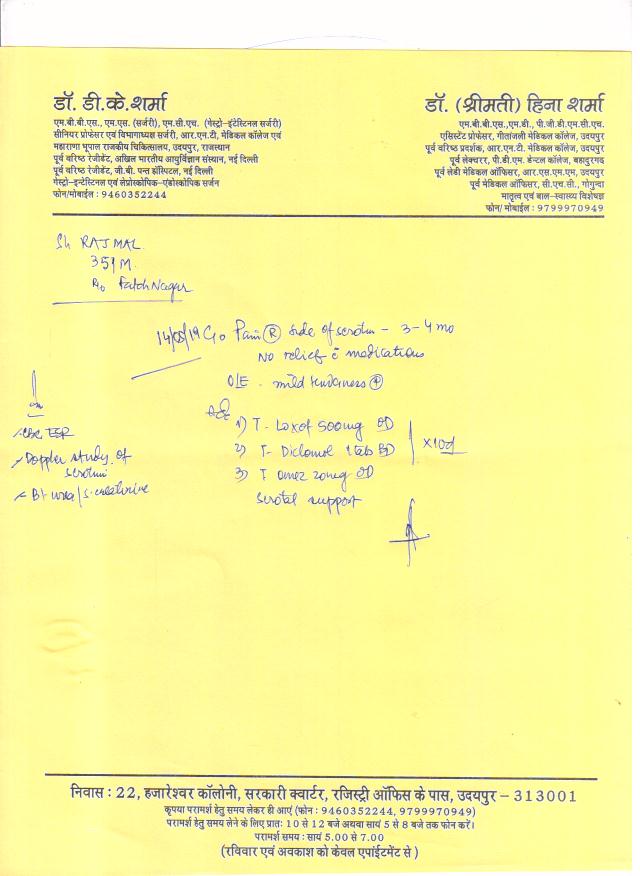 डॉ. डी.के.शर्मा
एम.बी.बी.एस., एम.एस. (सर्जरी), एम.सी.एच. (गेस्ट्रो-इंटेस्टिनल सर्जरी)
सीनियर प्रोफेसर एवं विभागाध्यक्ष सर्जरी, आर.एन.टी. मेडिकल कॉलेज एवं
महाराणा भूपाल राजकीय चिकित्सालय, उदयपुर, राजस्थान
पूर्व वरिष्ठ रेजीडेंट, अखिल भारतीय आयुर्विज्ञान संस्थान, नई दिल्ली
पूर्व वरिष्ठ रेजीडेंट, जी.बी. पन्त हॉस्पिटल, नई दिल्ली
गेस्ट्रो-इन्टेस्टिनल एवं लेप्रोस्कोपिक-एंडोस्कोपिक सर्जन
फोन/मोबाईल : 9460352244
डॉ. (श्रीमती) हिना शर्मा
एम.बी.बी.एस.,एम.डी., पी.जी.डी.एम.सी.एच.
एसिस्टेंट प्रोफेसर, गीतांजली मेडिकल कॉलेज, उदयपुर
पूर्व वरिष्ठ प्रदर्शक, आर.एन.टी. मेडिकल कॉलेज, उदयपुर
पूर्व लेक्चरर, पी.डी.एम. डेन्टल कॉलेज, बहादुरगढ़
पूर्व लेडी मेडिकल ऑफिसर, आर.एस.एम.एम, उदयपुर
पूर्व मेडिकल ऑफिसर, सी.एच.सी., गोगुन्दा
मातृत्व एवं बाल-स्वास्थ्य विशेषज्ञ
फोन/ मोबाईल : 9799970949
Sh RAJMAL
35/M
R/o Fateh Nagar
14/08/19 C/o Pain (R) side of scrotum - 3-4 mo
No relief c̄ medications
O/E - mild tenderness (+)
CBC ESR
Doppler study of
scrotum
Bl urea/s.creatinine
1) T- Loxof 500mg OD
2) T- Diclomol 1 tab BD
3) T Omez 20mg OD
x 10d
Scrotal support
निवास : 22, हजारेश्वर कॉलोनी, सरकारी क्वार्टर, रजिस्ट्री ऑफिस के पास, उदयपुर – 313001
कृपया परामर्श हेतु समय लेकर ही आएं (फोन : 9460352244, 9799970949)
परामर्श हेतु समय लेने के लिए प्रातः 10 से 12 बजे अथवा सायं 5 से 8 बजे तक फोन करें।
परामर्श समय : सायं 5.00 से 7.00
(रविवार एवं अवकाश को केवल एपांईटमेंट से )